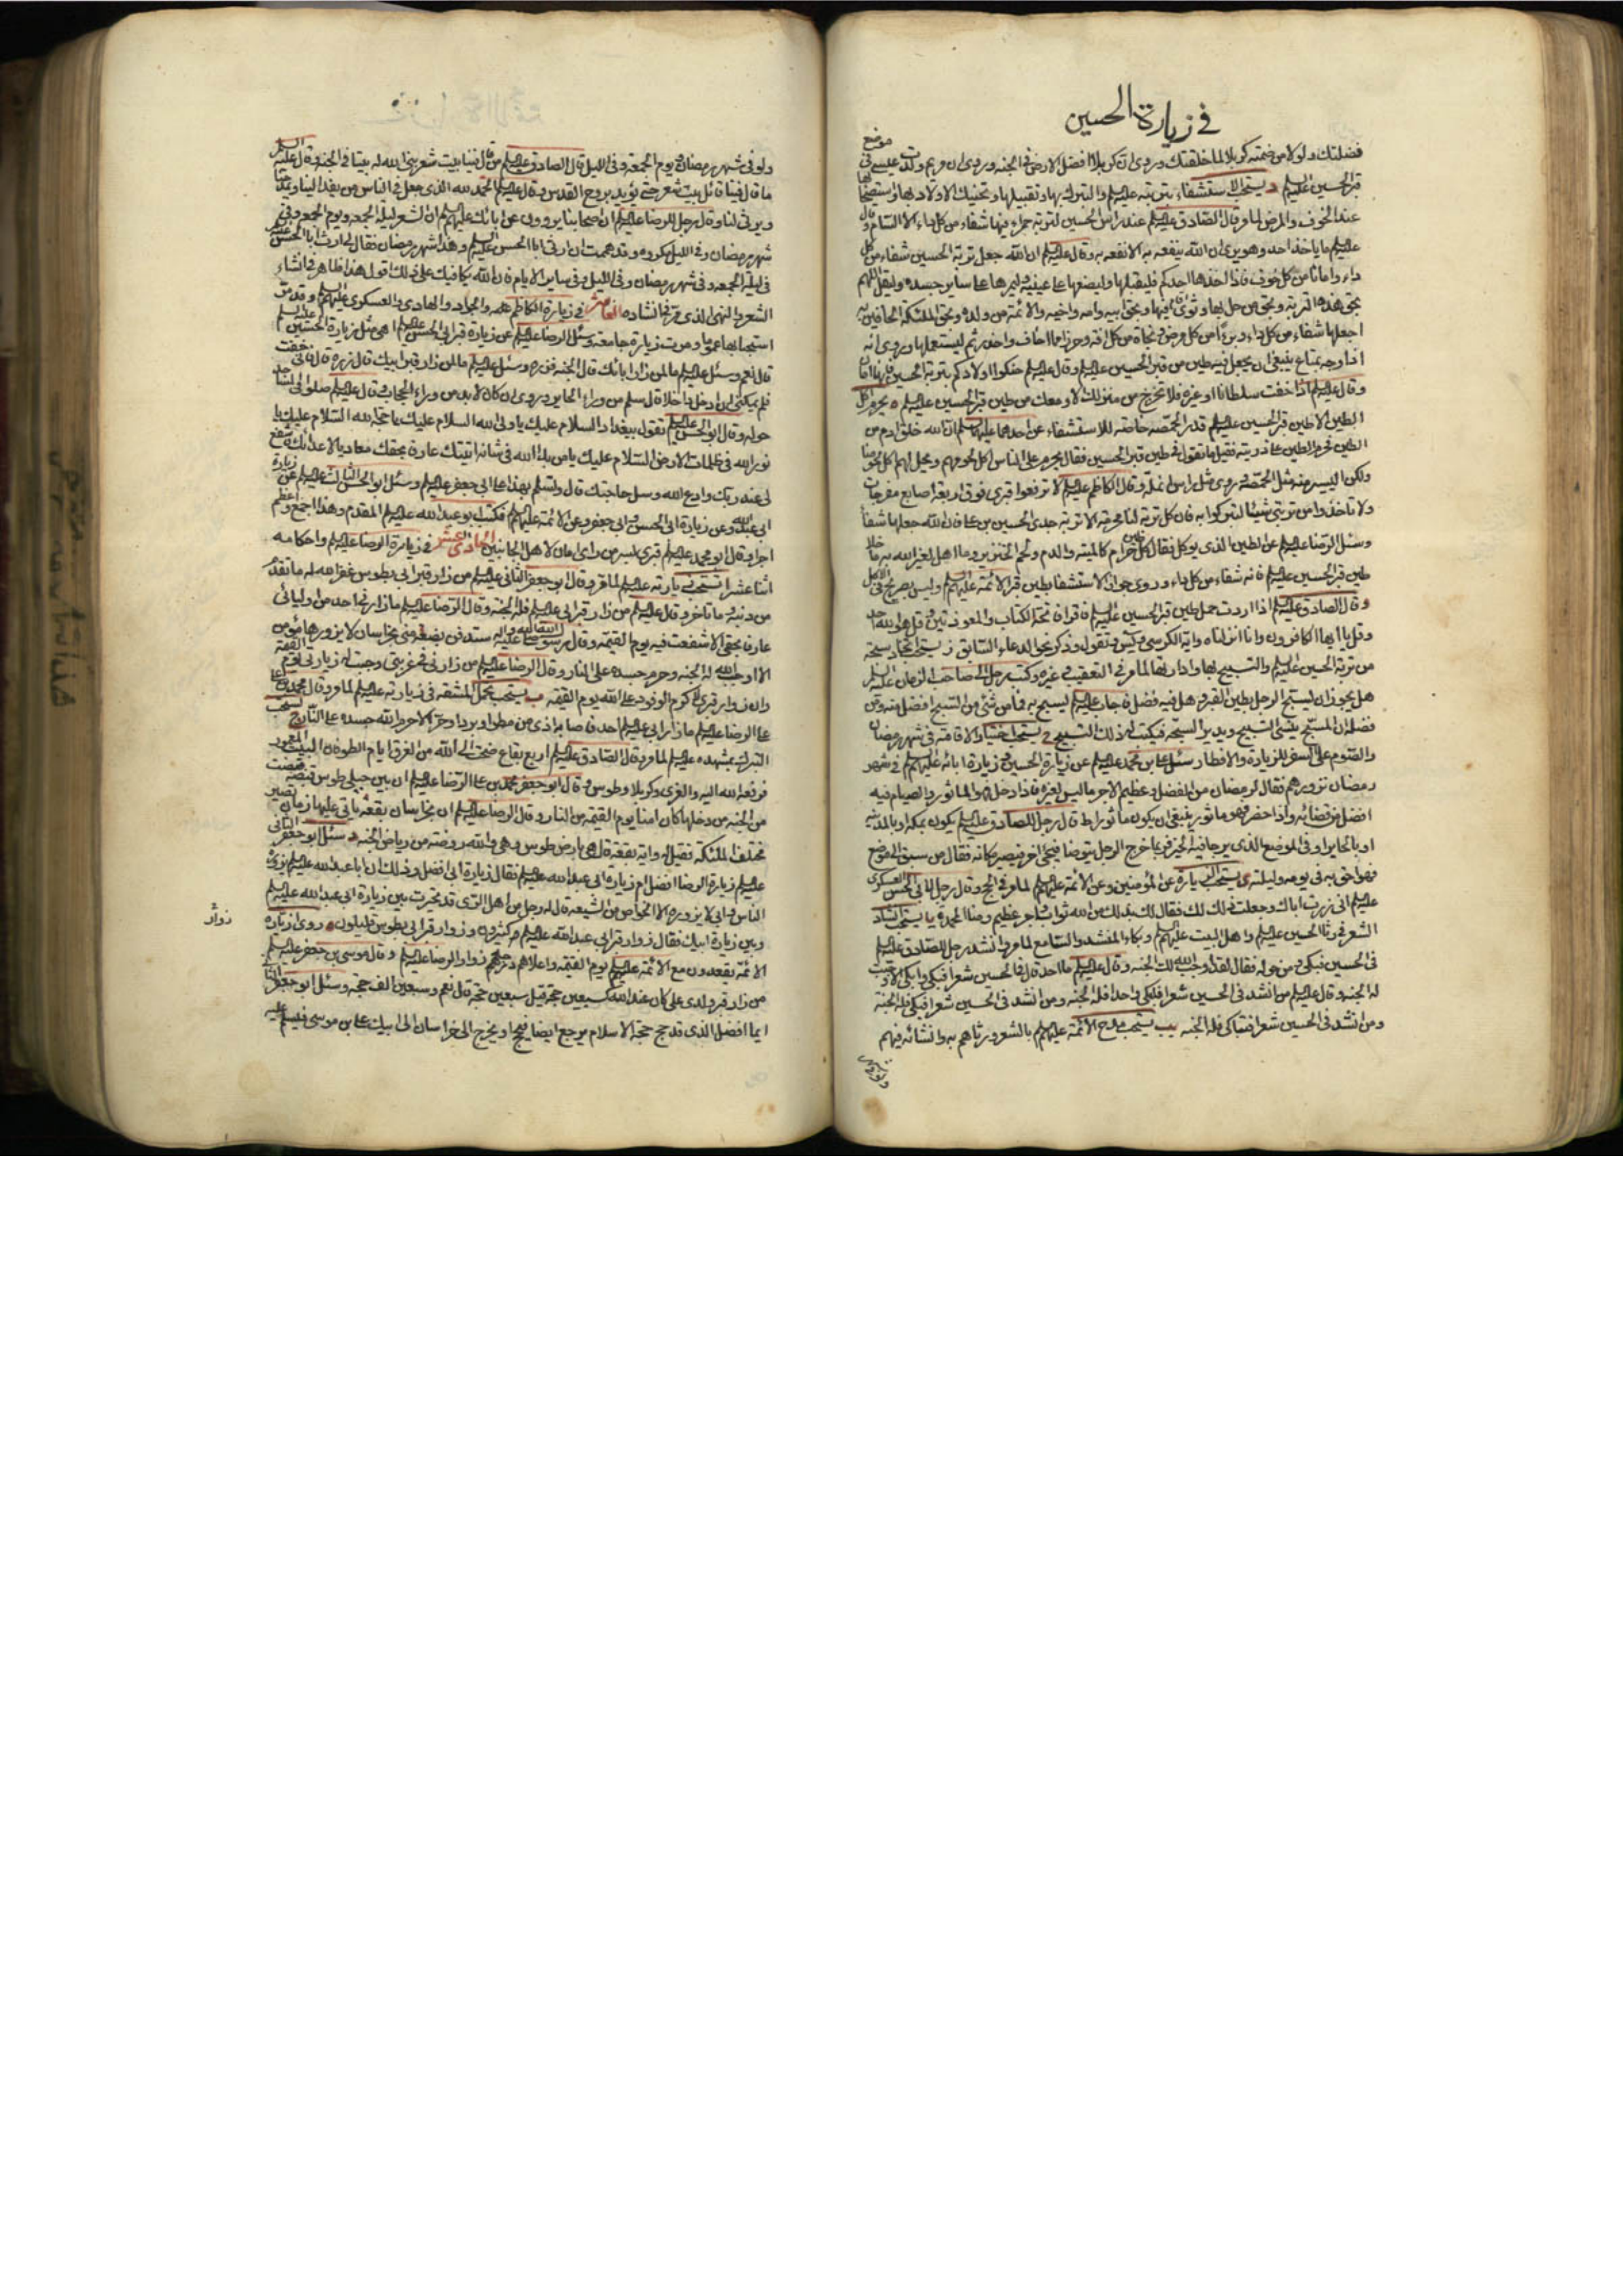 في زيارة الحسين
موضع
فضلتك ولولا من ضمته كربلا لما خلقتك وروى ان كربلا افضل الارض في الجنة وروى ان مريم ولدت عيسى في
قبر الحسين عليه السلم ويستحب الاستشفاء بتربته عليه السلم والتبرك بها وتقبيلها وتحنيك الاولاد بها واستصحابها
عند الخوف والمرض لما مر وقال الصادق عليه السلم عند راس الحسين لتربة حمراء فيها شفاء من كل داء الا السام وقال
عليه السلم ما ياخذ احد وهو يرى ان الله ينفعه به الا نفعه به وقال عليه السلم ان الله جعل تربة الحسين شفاء من كل
داء وامانا من كل خوف فاذا اخذها احدكم فليقبلها وليضعها على عينيه وليمرها على ساير جسده وليقل اللهم
بحق هذه التربة وبحق من حل بها وثوى فيها وبحق ابيه وامه واخيه والائمة من ولده وبحق الملئكة الحافين به
اجعلها شفاء من كل داء وبرءا من كل مرض ونجاة من كل افة وحرزا مما اخاف واحذر ثم ليستعملها وروى انه
اذا وجه بمتاع ينبغي ان يجعل فيه طين من قبر الحسين عليه السلم وقال عليه السلم حنكوا اولادكم بتربة الحسين فانها امان
وقال عليه السلم اذا خفت سلطانا او غيره فلا تخرج من منزلك الا ومعك من طين قبر الحسين عليه السلم ه يحرم اكل
الطين الا طين قبر الحسين عليه السلم قدر الحمصة خاصة للاستشفاء عن احدهما عليهما السلم ان الله خلق ادم من
الطين فحرم الطين على ذريته فقيل ما تقول في طين قبر الحسين فقال يحرم على الناس اكل لحومهم ويحل لهم اكل لحومنا
ولكن اليسير منه مثل الحمصة وروى مثل راس انملة وقال الكاظم عليه السلم لا ترفعوا قبري فوق اربعة اصابع مفرجات
ولا تاخذوا من تربتي شيئا لتبركوا به فان كل تربة لنا محرمة الا تربة جدي الحسين بن علي فان الله جعلها شفاء
وسئل الرضا عليه السلم عن الطين الذي يوكل فقال كل طين حرام كالميتة والدم ولحم الخنزير وما اهل لغير الله به ما خلا
طين قبر الحسين عليه السلم فانه شفاء من كل داء وروى جواز الاستشفاء بطين قبر الائمة عليهم السلم وليس بصريح في الاكل
وقال الصادق عليه السلم اذا اردت حمل طين قبر الحسين عليه السلم فاقرا فاتحة الكتاب والمعوذتين وقل هو الله احد
وقل يا ايها الكافرون وانا انزلناه واية الكرسي ويس وتقول وذكر نحو الدعاء السابق ز يستحب اتخاذ سبحة
من تربة الحسين عليه السلم والتسبيح بها وادارتها لما مر في التعقيب وغيره وكتب رجل الى صاحب الزمان عليه السلم
هل يجوز ان يسبح الرجل بطين القبر وهل فيه فضل فاجاب عليه السلم يسبح به فما من شئ من التسبيح افضل منه ومن
فضله ان المسبح ينسى التسبيح ويدير السبحة فيكتب له ذلك التسبيح ح يستحب اختيار الاقامة في شهر رمضان
والصوم على السفر للزيارة والافطار وسئل علي بن محمد عليه السلم عن زيارة الحسين وزيارة ابائه عليهم السلم في شهر
رمضان نزورهم فقال لرمضان من الفضل وعظيم الاجر ما ليس لغيره فاذا دخل فهو الماثور والصيام فيه
افضل من قضائه واذا حضر فهو ماثور ينبغي ان يكون ماثورا ط قال رجل للصادق عليه السلم يكون بمكة او بالمدينة
او بالحاير او في الموضع الذي يرجا فيه الخير فربما خرج الرجل يتوضا فيجئ اخر فيصير مكانه فقال من سبق الى موضع
فهو احق به في يومه وليلته ى يستحب الزيارة عن المؤمنين وعن الائمة عليهم السلم لما مر في الحج وقال رجل لابي الحسن العسكري
عليه السلم اني زرت اباك وجعلت ذلك لك فقال لك بذلك من الله ثواب واجر عظيم ومنا المحمدة يا يستحب انشاد
الشعر في رثا الحسين عليه السلم واهل البيت عليهم السلم وبكاء المنشد والسامع لما مر وانشد رجل للصادق عليه السلم
في الحسين فبكى ومن حوله فقال لقد اوجب الله لك الجنة وقال عليه السلم ما احد قال في الحسين شعرا فبكى وابكى الا وجبت
له الجنة وقال عليه السلم من انشد في الحسين شعرا فابكى واحدا فله الجنة ومن انشد في الحسين شعرا فبكى فله الجنة
ومن انشد في الحسين شعرا فتباكى فله الجنة يب يستحب مدح الائمة عليهم السلم بالشعر ورثاهم به وانشائه فيهم
ولو في شهر رمضان ويوم الجمعة وفي الليل قال الصادق عليه السلم من قال فينا بيت شعر بنى الله له بيتا في الجنة وقال عليه السلم
ما قال فينا قائل بيت شعر حتى يؤيد بروح القدس وقال عليه السلم الحمد لله الذي جعل في الناس من يفد الينا ويمدحنا
ويرثي لنا وقال رجل للرضا عليه السلم ان اصحابنا يروون عن ابائك عليهم السلم ان الشعر ليلة الجمعة ويوم الجمعة وفي
شهر رمضان وفي الليل مكروه وقد هممت ان ارثي ابا الحسن عليه السلم وهذا شهر رمضان فقال لي ارث ابا الحسن عليه السلم
في ليلة الجمعة وفي شهر رمضان وفي الليل وفي ساير الايام فان الله يكافيك على ذلك اقول هذا ظاهر في انشاء
الشعر والنهي الذي مر في انشاده العاشر في زيارة الكاظم عليه السلم والجواد والهادي والعسكري عليهم السلم وقد مر
استحبابها عموما ومرت زيارة جامعة وسئل الرضا عليه السلم عن زيارة قبر ابي الحسن عليه السلم اهي مثل زيارة الحسين عليه السلم
قال نعم وسئل عليه السلم ما لمن زار اباك قال الجنة فزره وسئل عليه السلم ما لمن زار قبر ابيك قال زره قال فاني خفت
فلم يمكني ان ادخل داخلا قال سلم من وراء الحاير وروى ان كان لا بد من وراء الحجاب وقال عليه السلم صلوا في المساجد
حوله وقال ابو الحسن عليه السلم تقول ببغداد السلام عليك يا ولي الله السلام عليك يا حجة الله السلام عليك يا
نور الله في ظلمات الارض السلام عليك يا من بدا لله في شانه اتيتك عارفا بحقك معاديا لاعدائك فاشفع
لي عند ربك وادع الله وسل حاجتك قال وتسلم بهذا على ابي جعفر عليه السلم وسئل ابو الحسن الثالث عليه السلم عن زيارة
ابي عبد الله وعن زيارة ابي الحسن وابي جعفر وعن الائمة عليهم السلم فكتب ابو عبد الله عليه السلم المقدم وهذا اجمع واعظم
اجرا وقال ابو محمد عليه السلم قبري بسر من راى امان لاهل الجانبين الحادي عشر في زيارة الرضا عليه السلم واحكامه
اثنا عشر ا تستحب زيارته عليه السلم لما مر وقال ابو جعفر الثاني عليه السلم من زار قبر ابي بطوس غفر الله له ما تقدم
من ذنبه وما تاخر وقال عليه السلم من زار قبر ابي عليه السلم فله الجنة وقال الرضا عليه السلم ما زارني احد من اوليائي
عارفا بحقي الا شفعت فيه يوم القيمة وقال رسول الله صلى الله عليه واله ستدفن بضعة مني بخراسان لا يزورها مؤمن
الا اوجب الله له الجنة وحرم جسده على النار وقال الرضا عليه السلم من زارني في غربتي وجبت له زيارتي يوم القيمة
وان زوار قبري لاكرم الوفود على الله يوم القيمة ب يستحب تحمل المشقة في زيارته عليه السلم لما مر وقال محمد بن علي
على الرضا عليه السلم ما زار ابي عليه السلم احد فاصابه اذى من مطر او برد او حر الا حرم الله جسده على النار ج يستحب
التبرك بمشهده عليه السلم لما مر وقال الصادق عليه السلم اربع بقاع ضجت الى الله من الغرق ايام الطوفان البيت المعمور
فرفعه الله اليه والغري وكربلا وطوس وقال ابو جعفر محمد بن علي الرضا عليه السلم ان بين جبلي طوس قبضة قبضت
من الجنة من دخلها كان امنا يوم القيمة من النار وقال الرضا عليه السلم ان بخراسان بقعة ياتي عليها زمان تصير
مختلف الملئكة فقيل له واية بقعة قال هي بارض طوس وهي والله روضة من رياض الجنة د سئل ابو جعفر الثاني
عليه السلم زيارة الرضا افضل ام زيارة ابي عبد الله عليه السلم فقال زيارة ابي افضل وذلك ان ابا عبد الله عليه السلم يزوره
الناس وابي لا يزوره الا الخواص من الشيعة قال له رجل من اهل الري قد تحيرت بين زيارة ابي عبد الله عليه السلم
وبين زيارة ابيك فقال زوار قبر ابي عبد الله عليه السلم كثيرون وزوار قبر ابي بطوس قليلون ه روى ان زيارة
زوار
الائمة يقعدون مع الائمة عليهم السلم يوم القيمة واعلاهم درجة زوار الرضا عليه السلم وقال موسى بن جعفر عليه السلم
من زار قبر ولدي علي كان عند الله كسبعين حجة قيل سبعين حجة قال نعم وسبعين الف حجة وسئل ابو جعفر الثاني
ايما افضل الذي قد حج حجة الاسلام يرجع ايضا فيحج او يخرج الى خراسان الى ابيك علي بن موسى فيسلم عليه